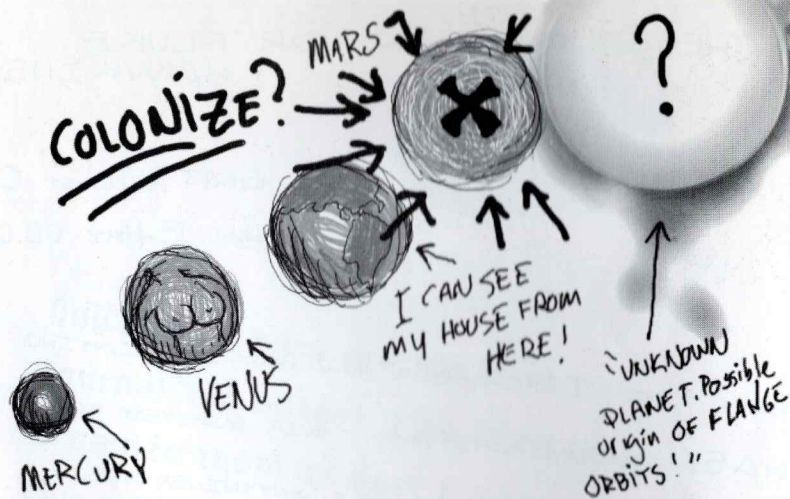 COLONIZE?
MARS
?
I CAN SEE
MY HOUSE FROM
HERE!
VENUS
MERCURY
"UNKNOWN
PLANET. Possible
origin OF FLANGE
ORBITS!"